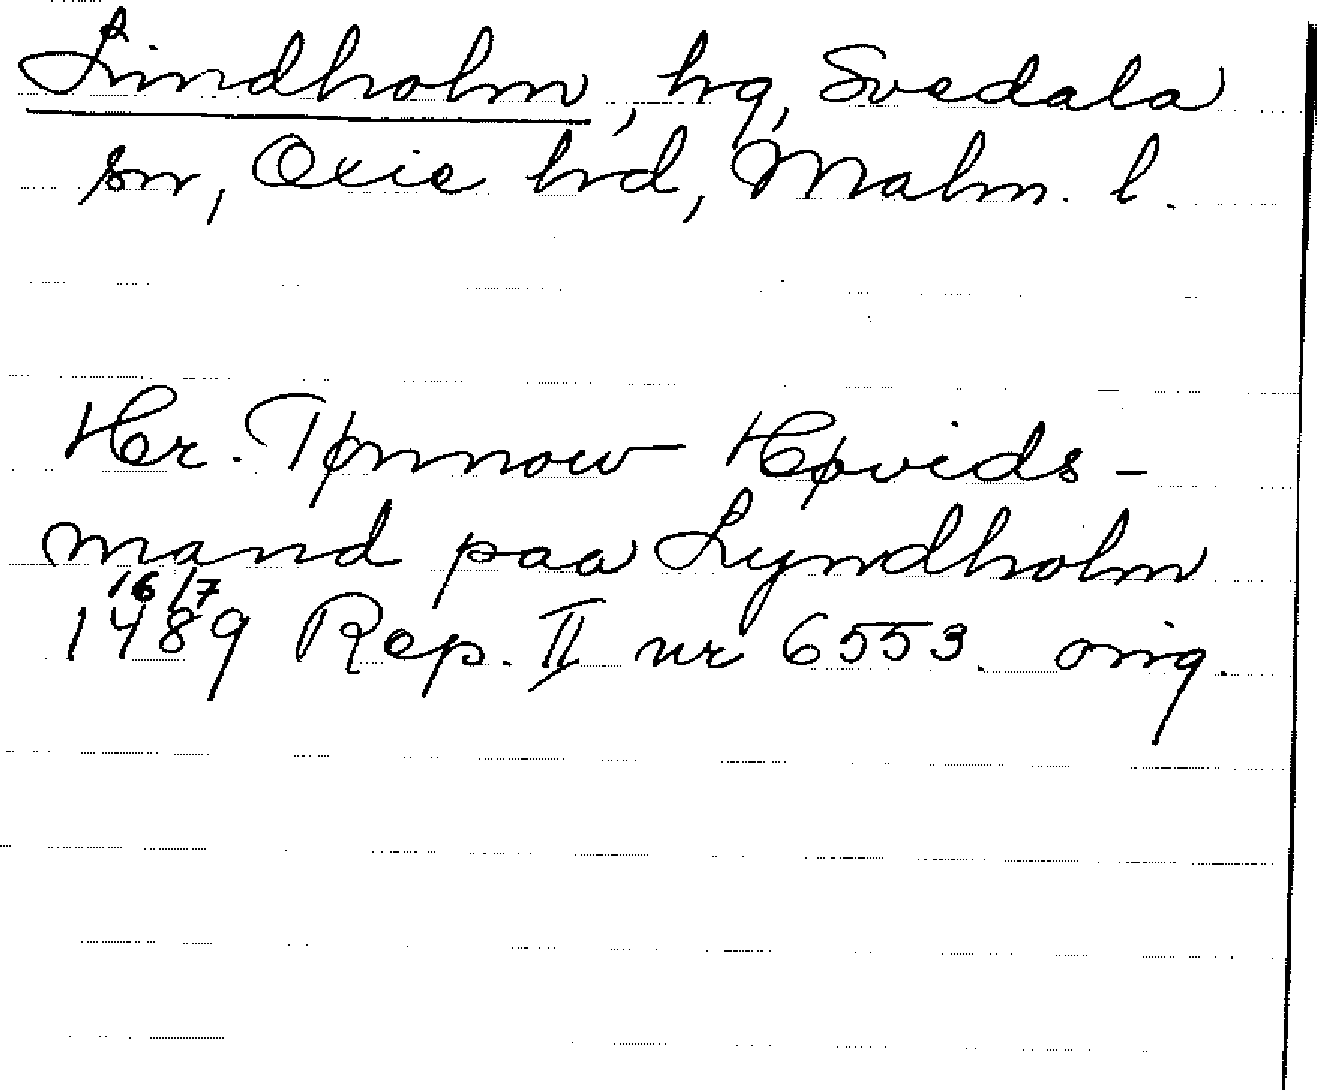 Lindholm, hg, Svedala
sn, Oxie hrd, Malm. l.
Her. Tønnow Høvids-
mand paa Lyndholm
16/7
1489 Rep. II nr 6553. orig.